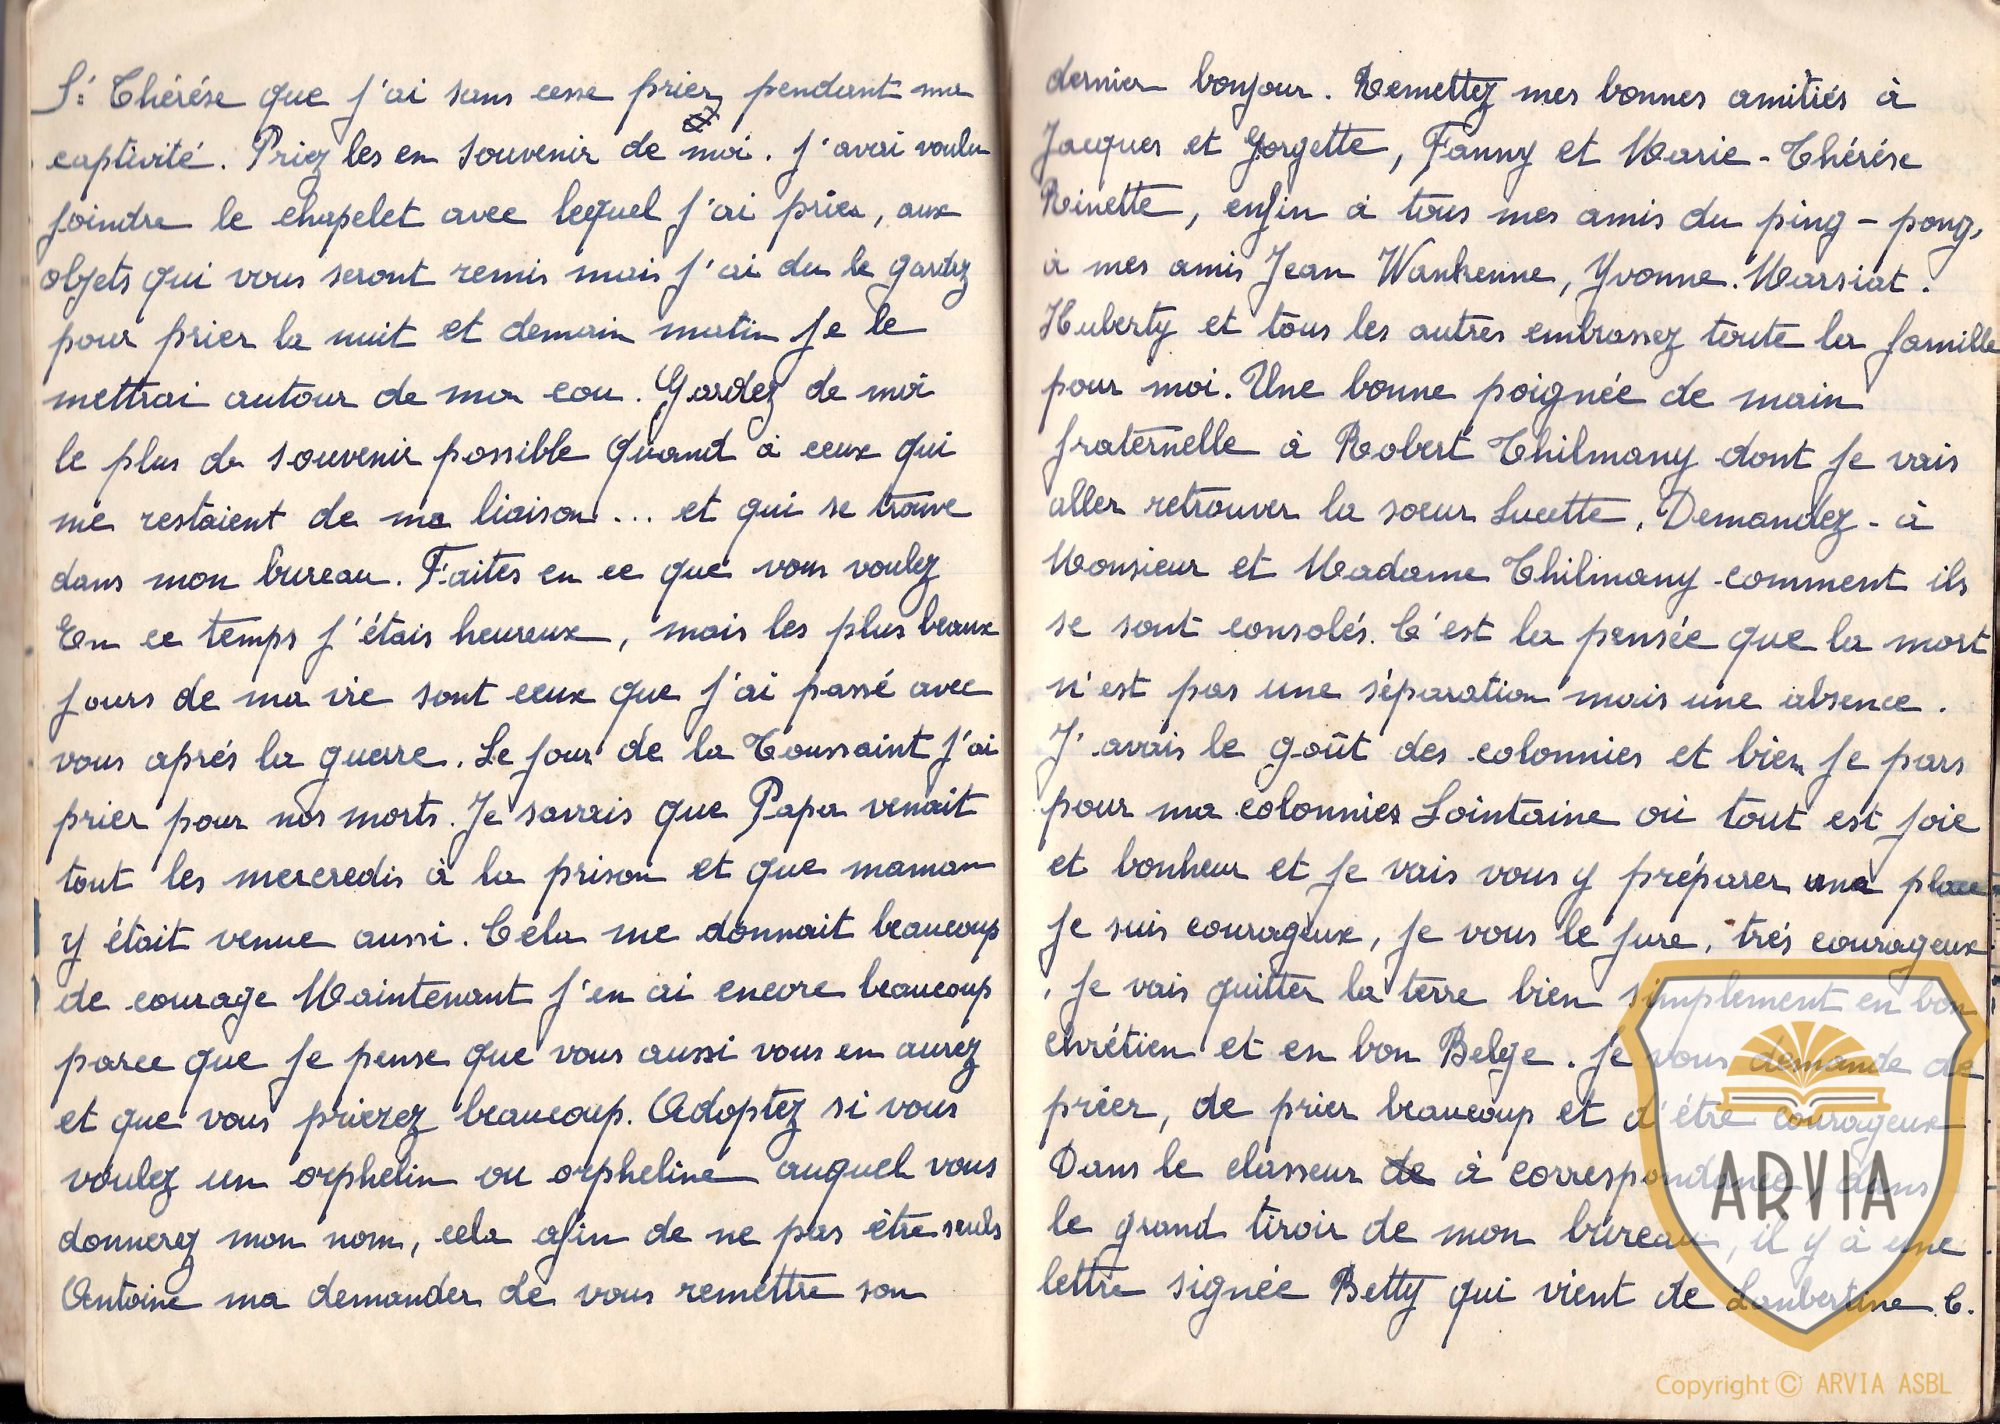 St Thérése que j'ai sans cesse prier pendant ma
captivité. Priez les en souvenir de moi. j'avai voulu
joindre le chapelet avec lequel j'ai prier, aux
objets qui vous seront remis mais j'ai du le gardez
pour prier la nuit et demain matin je le
mettrai autour de mon cou. Gardez de moi
le plus de souvenir possible Quand à ceux qui
me restaient de ma liaison... et qui se trouve
dans mon bureau. Faites en ce que vous voulez
En ce temps j'étais heureux, mais les plus beaux
jours de ma vie sont ceux que j'ai passé avec
vous aprés la guerre. Le jour de la Toussaint j'ai
prier pour nos morts. Je savais que Papa venait
tout les mercredis à la prison et que maman
y était venue aussi. Cela me donnait beaucoup
de courage Maintenant j'en ai encore beaucoup
parce que je pense que vous aussi vous en aurez
et que vous prierez beaucoup. Adoptez si vous
voulez un orphelin ou orpheline auquel vous
donnerez mon nom, cela afin de ne pas être seuls
Antoine ma demander de vous remettre son
dernier bonjour. Remettez mes bonnes amitiés à
Jacques et Gorgette, Fanny et Marie-Thérése
Rinette, enfin à tous mes amis du ping-pong,
à mes amis Jean Wankenne, Yvonne. Marsiat.
Huberty et tous les autres embrassez toute la famille
pour moi. Une bonne poignée de main
fraternelle à Robert Thilmany dont je vais
aller retrouver la soeur Lucette. Demandez-à
Monsieur et Madame Thilmany comment ils
se sont consolés. C'est la pensée que la mort
n'est pas une séparation mais une absence.
J'avais le goût des colonnies et bien je pars
pour ma colonnies Lointaine où tout est joie
et bonheur et je vais vous y préparer une place
je suis courageux, je vous le jure, trés courageux
, je vais quitter la terre bien simplement en bon
chrétien et en bon Belge. je vous demande de
prier, de prier beaucoup et d'étre courageux
Dans le classeur de à correspondance, dans
le grand tiroir de mon bureau, il y à une
lettre signée Betty qui vient de Lambertine C.
ARVIA
Copyright © ARVIA ASBL